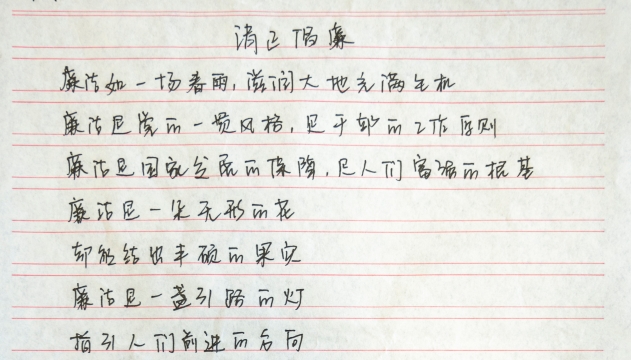 清正倡廉
廉洁如一场春雨,滋润大地充满生机
廉洁是党的一贯风格,是干部的工作原则
廉洁是国家发展的保障,是人们富强的根基
廉洁是一朵无形的花
却能结出丰硕的果实
廉洁是一盏引路的灯
指引人们前进的方向